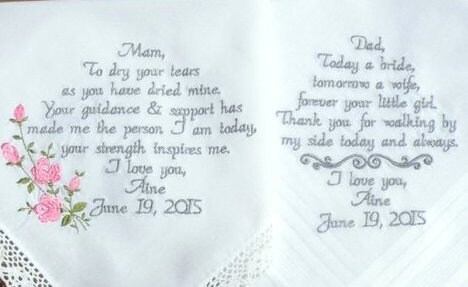 Mam,
To dry your tears
as you have dried mine.
Your guidance & support has
made me the person I am today,
your strength inspires me.
I love you,
Aine
June 19, 2015
Dad,
Today a bride,
tomorrow a wife,
forever your little girl.
Thank you for walking by
my side today and always.
I love you,
Aine
June 19, 2015